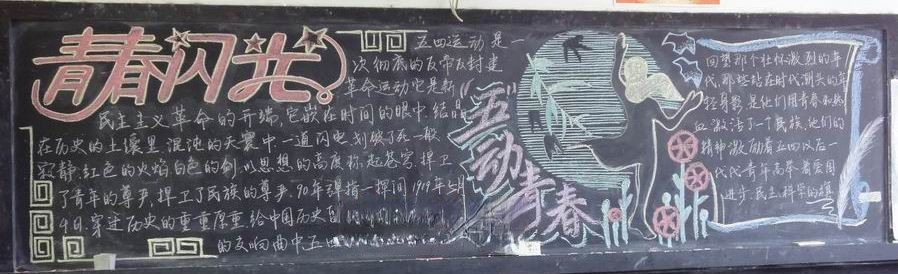 青春闪光
五四运动是一
次彻底的反帝反封建
革命运动它是新
民主主义革命的开端,它嵌在时间的眼中,结晶
在历史的土壤里,混沌的天寰中,一道闪电,划破了死一般
寂静;红色的火焰,白色的剑,以思想的高度,称起苍穹,捍卫
了青年的尊严,捍卫了民族的尊严,90年弹指一挥间,1919年5月
4日,穿过历史的重重厚重,给中国历史
的交响曲中五四
“五”动青春
回望那个壮怀激烈的年
代,那些站在时代潮头的年
轻身影,是他们用青春和热
血激活了一个民族,他们的
精神激励着五四以后一
代代青年高举着爱国
进步,民主,科学的旗